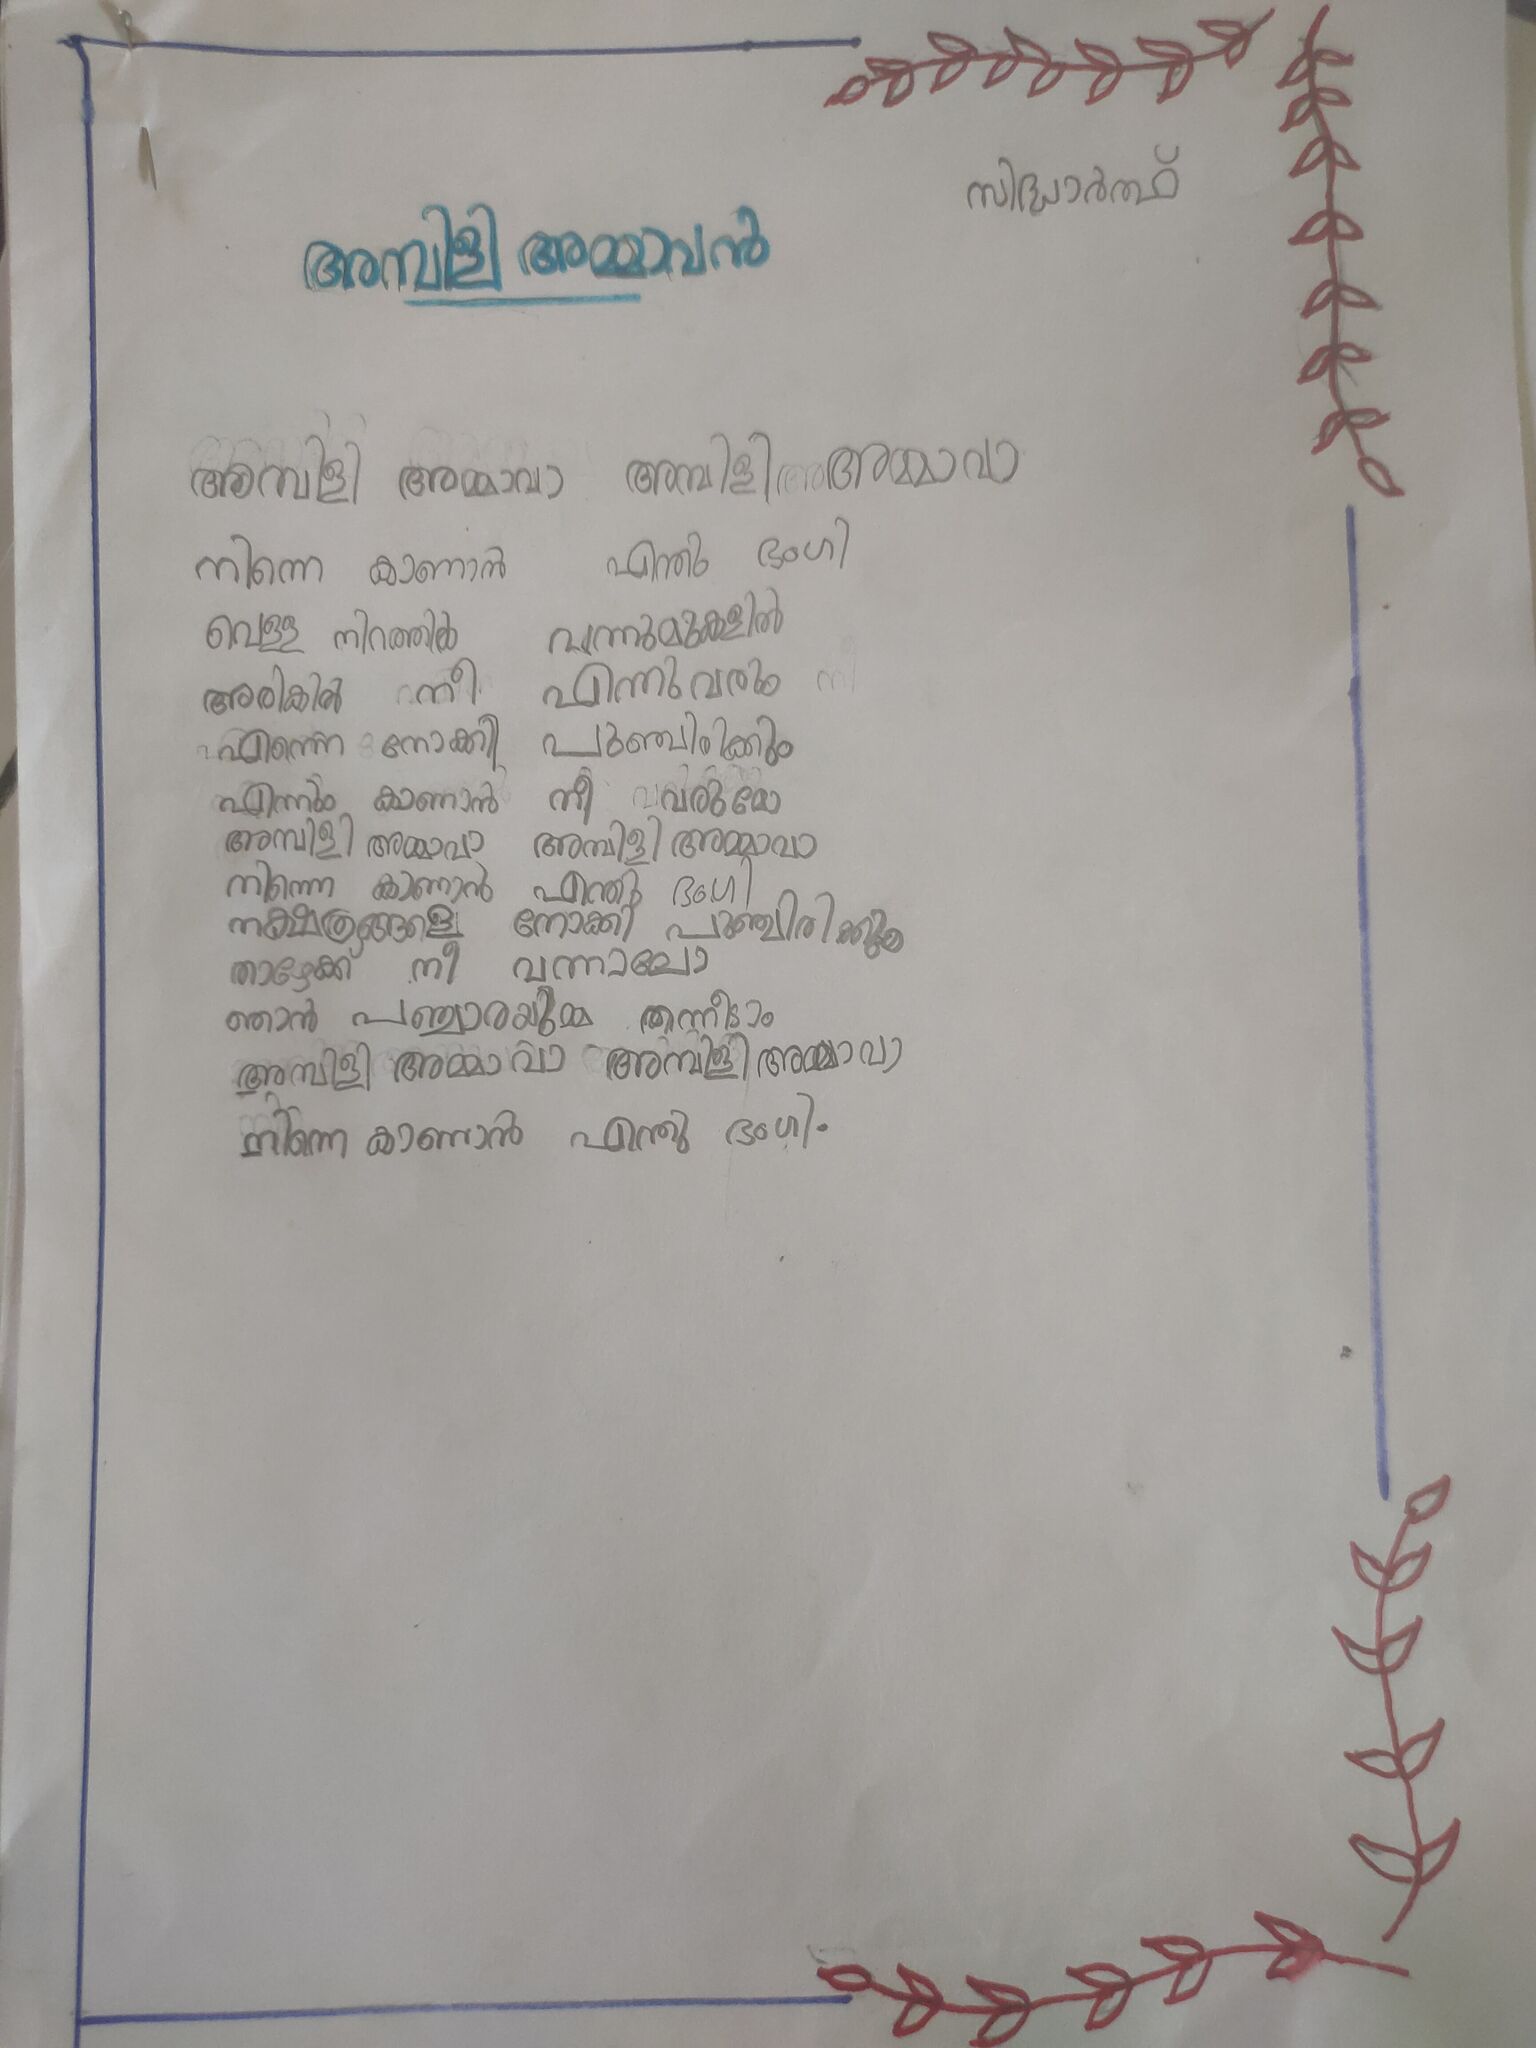 സിദ്ധാർത്ഥ്
അമ്പിളി അമ്മാവൻ
അമ്പിളി അമ്മാവാ അമ്പിളി അമ്മാവാ
നിന്നെ കാണാൻ എന്തു ഭംഗി
വെള്ള നിറത്തിൽ വന്നുമുകളിൽ
അരികിൽ നീ എന്നുവരും
എന്നെ നോക്കി പുഞ്ചിരിക്കും
എന്നും കാണാൻ നീ വരുമോ
അമ്പിളി അമ്മാവാ അമ്പിളി അമ്മാവാ
നിന്നെ കാണാൻ എന്തു ഭംഗി
നക്ഷത്രങ്ങളെ നോക്കി പുഞ്ചിരിക്കും
താഴേക്ക് നീ വന്നാലോ
ഞാൻ പഞ്ചാരയുമ്മ തന്നീടാം
അമ്പിളി അമ്മാവാ അമ്പിളി അമ്മാവാ
നിന്നെ കാണാൻ എന്തു ഭംഗി.